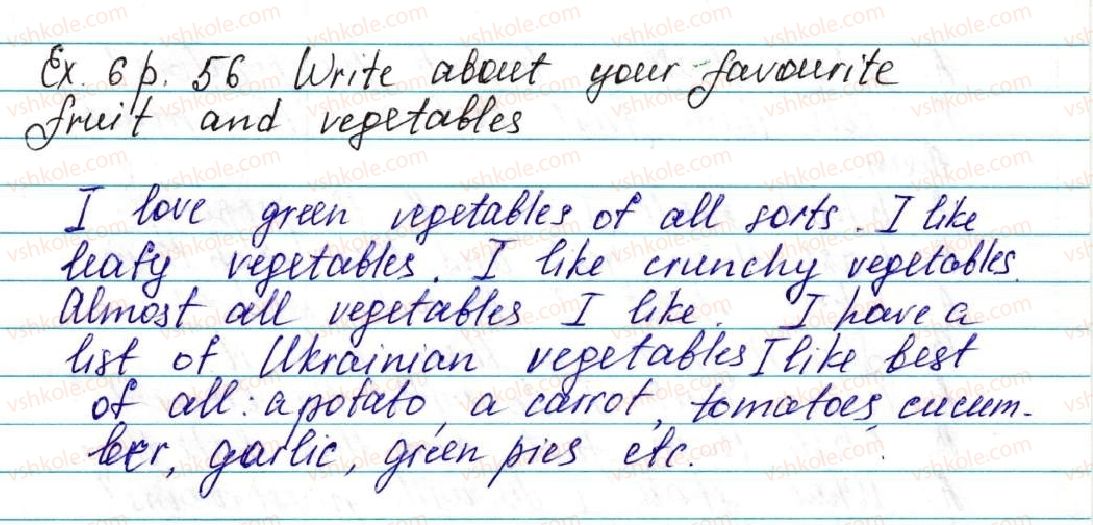 Ex. 6 p. 56 Write about your favourite
fruit and vegetables
I love green vegetables of all sorts. I like
leafy vegetables. I like crunchy vegetables.
Almost all vegetables I like. I have a
list of Ukrainian vegetables I like best
of all: a potato, a carrot, tomatoes, cucum-
ber, garlic, green pies etc.